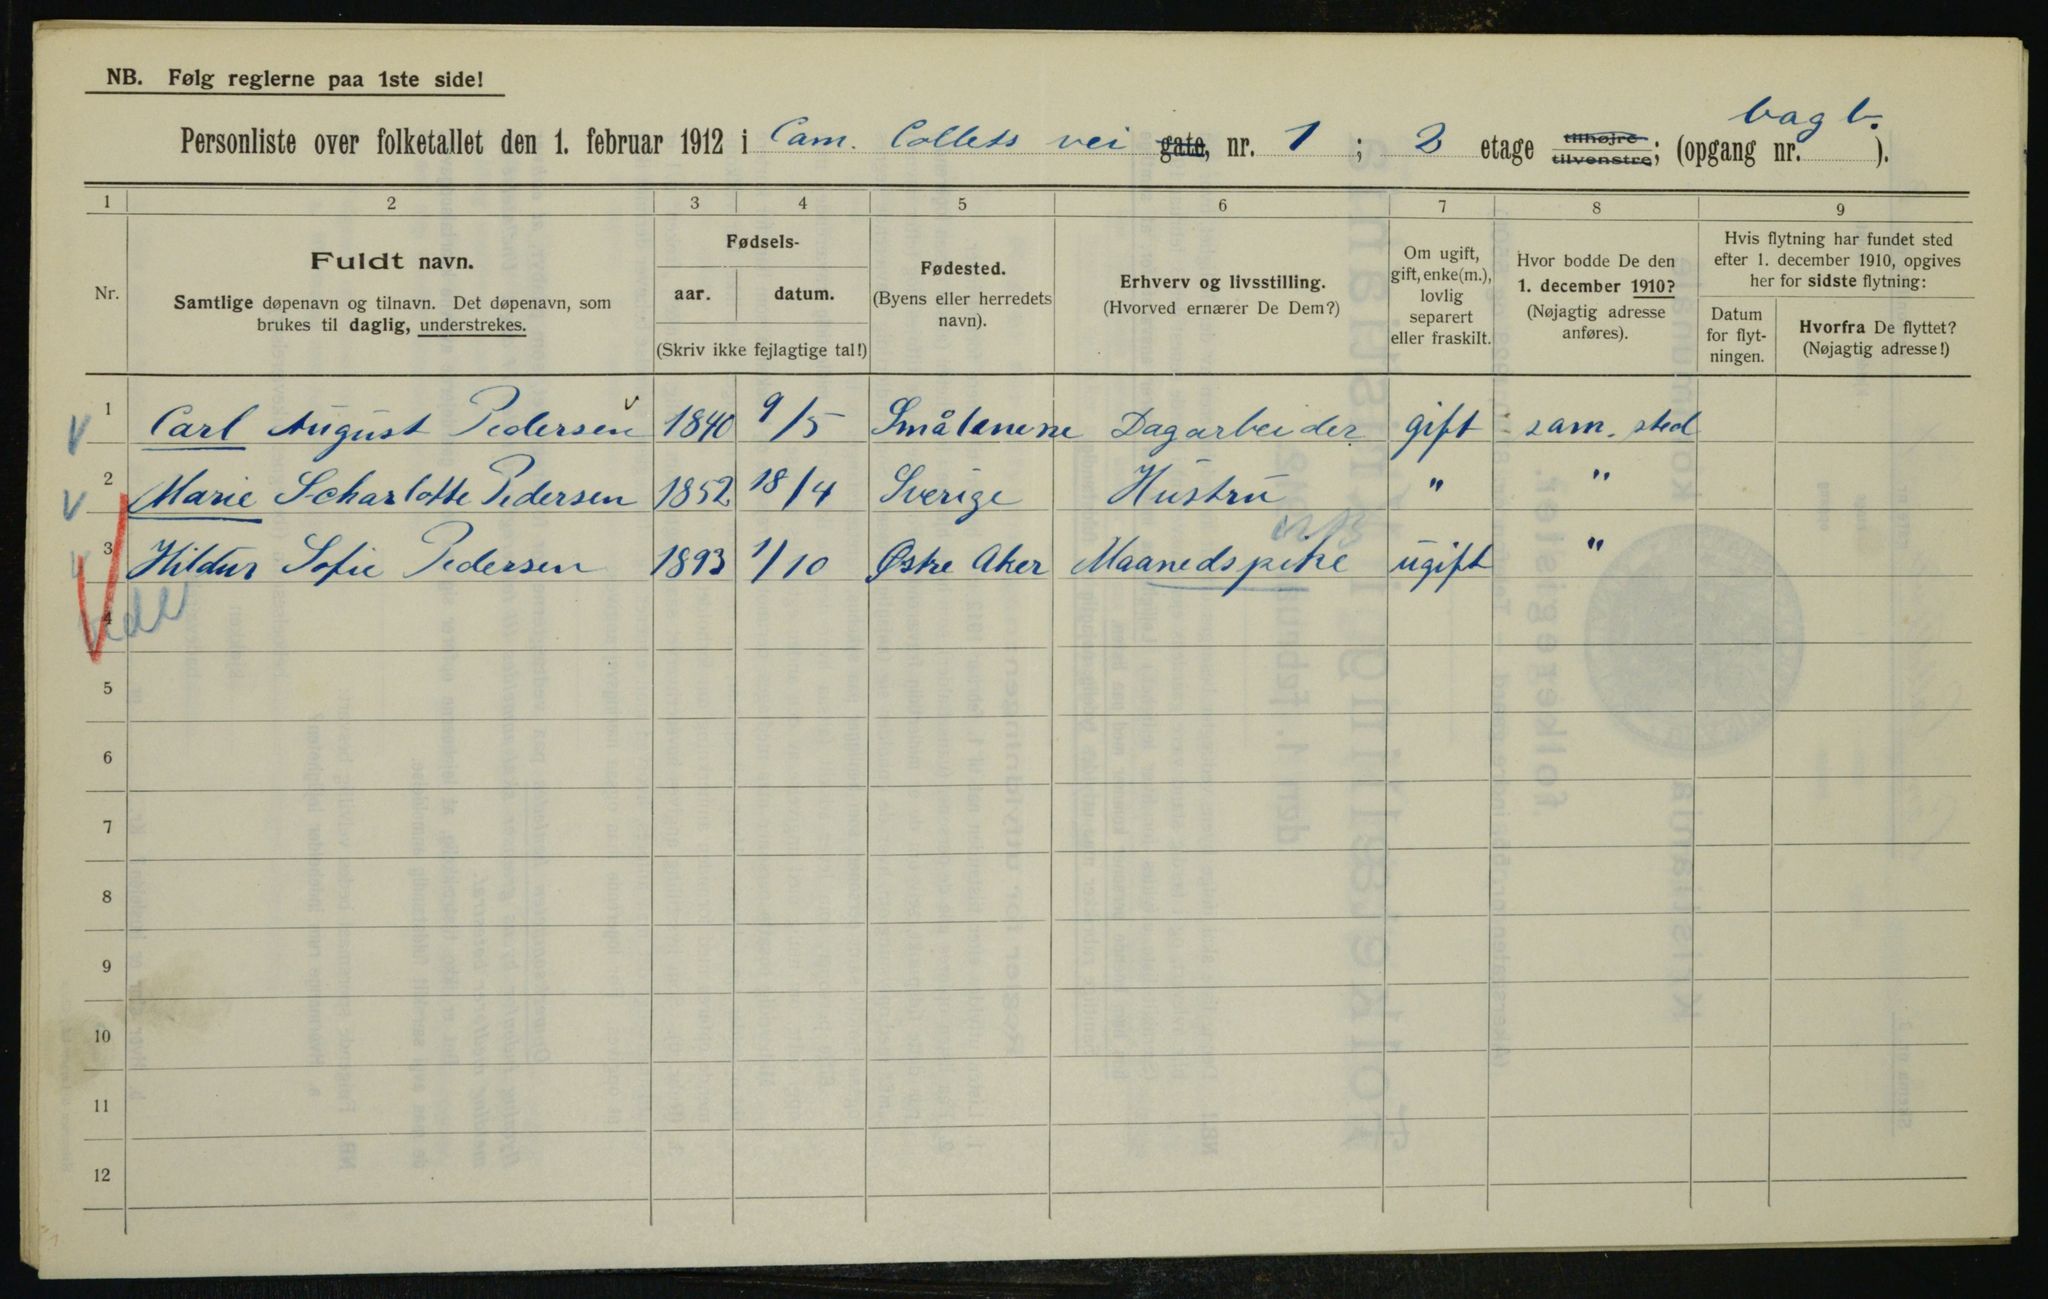 NB. Følg reglerne paa 1ste side!
bag b.
Personliste over folketallet den 1. februar 1912 i Cam. Collets vei gate, nr. 1 ; 2 etage tilhøjre tilvenstre; (opgang nr. ).
1 2 3 4 5 6 7 8 9
Nr.
Fuldt navn.
Samtlige døpenavn og tilnavn. Det døpenavn, som
brukes til daglig, understrekes.
Fødsels-
aar. datum.
(Skriv ikke fejlagtige tal!)
Fødested.
(Byens eller herredets
navn).
Erhverv og livsstilling.
(Hvorved ernærer De Dem?)
Om ugift,
gift, enke(m.),
lovlig
separert
eller fraskilt.
Hvor bodde De den
1. december 1910?
(Nøjagtig adresse
anføres).
Hvis flytning har fundet sted
efter 1. december 1910, opgives
her for sidste flytning:
Datum
for flyt-
ningen.
Hvorfra De flyttet?
(Nøjagtig adresse!)
1 Carl August Pedersen 1840 9/5 Smålenene Dagarbeider gift sam. sted
2 Marie Scharlotte Pedersen 1852 18/4 Sverige Hustru " "
3 Hildur Sofie Pedersen 1893 1/10 Østre Aker Maanedspike ugift "
4
5
6
7
8
9
10
11
12